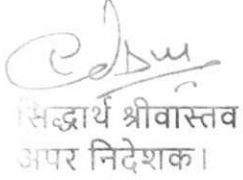 सिद्धार्थ श्रीवास्तव
अपर निदेशक।